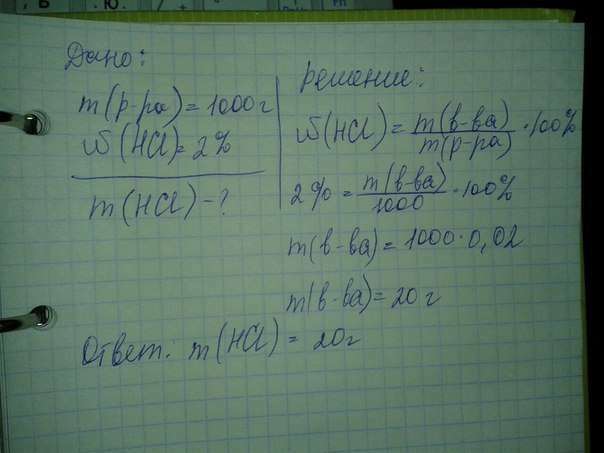 Дано:
m(р-ра) = 1000 г
ω(HCl) = 2%
m(HCl) - ?
решение:
ω(HCl) = m(в-ва) / m(р-ра) · 100%
2% = m(в-ва) / 1000 · 100%
m(в-ва) = 1000 · 0,02
m(в-ва) = 20 г
Ответ: m(HCl) = 20 г